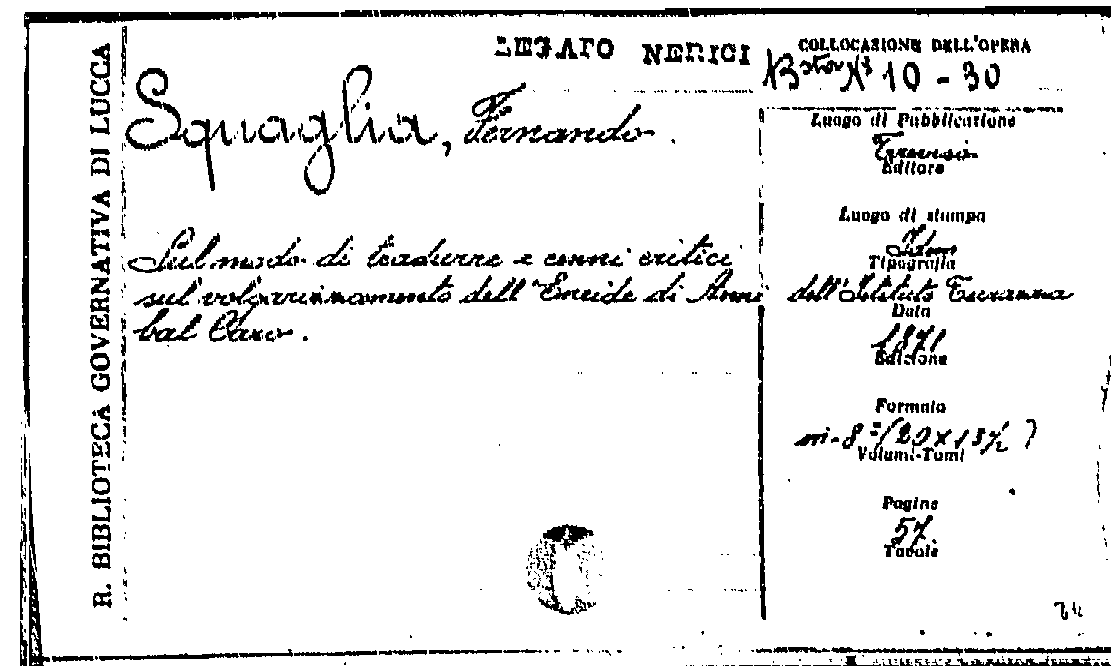 R. BIBLIOTECA GOVERNATIVA DI LUCCA
LEGATO NERICI
COLLOCAZIONE DELL'OPERA
10 - 30
Squaglia, Fernando.
Sul modo di tradurre e cenni critici
sul volgarizzamento dell'Eneide di Anni
bal Caro.
Luogo di Pubblicazione
Editore
Luogo di stampa
Tipografia
dell'Istituto
Data
1871
Edizione
Formato
in-8º (20 x 13½)
Volumi-Tomi
Pagine
57
Tavole